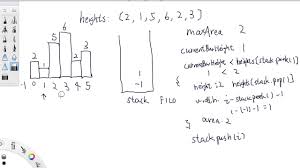 heights: [2, 1, 5, 6, 2, 3]
maxArea 2
currentBarHeight 1
currentBarHeight < heights[stack.peek()]
1 < 2
{ height = 2 heights[stack.pop()]
width: i - stack.peek() - 1
1 - (-1) - 1 = 1
} area = 2
stack.push(i)
6
5
3
2
2
1
-1 0 1 2 3 4 5
1
-1
stack FILO